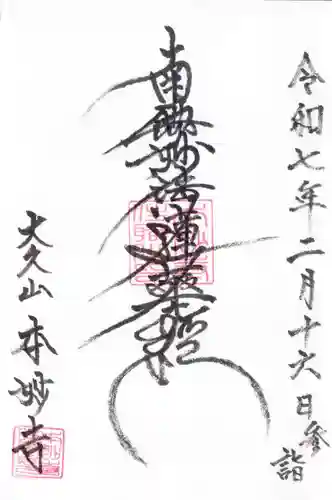 令和七年二月十六日参詣
南無妙法蓮華経
大久山
本妙寺